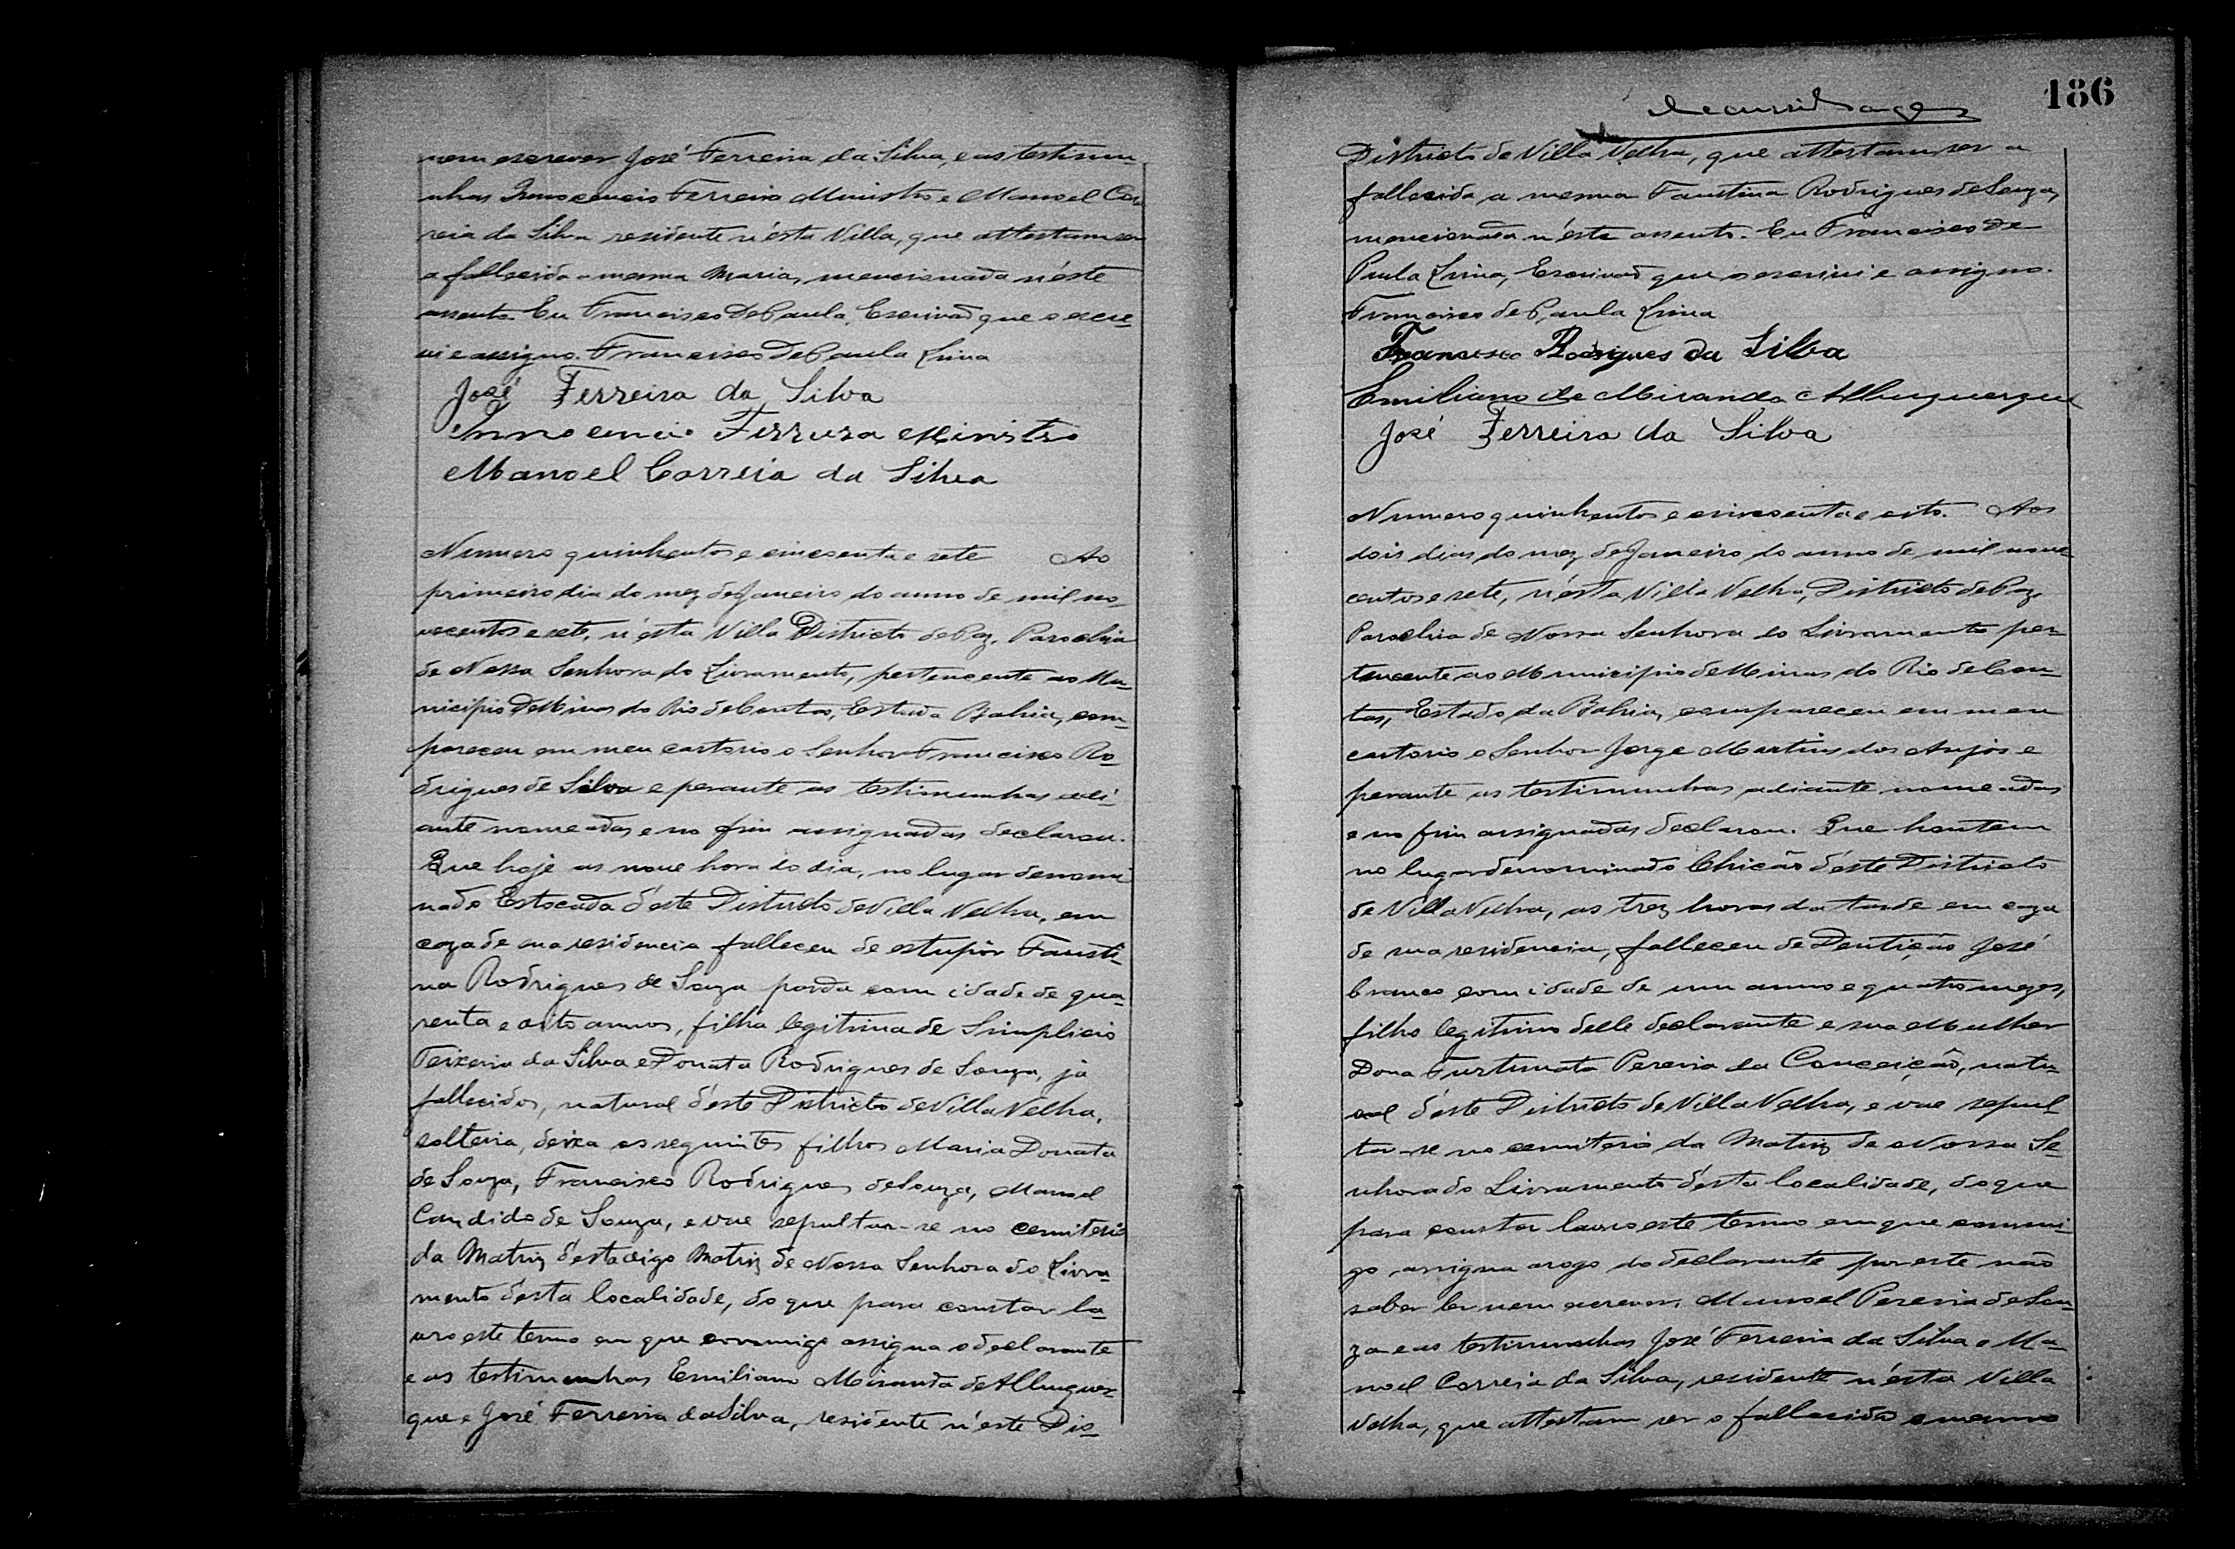 nem escrever José Ferreira da Silva, e as testimu-
nhas Innocencio Ferreira Ministro e Manoel Cor
reia da Silva residente n'ésta Villa, que attestam ser
a fallecida a mesma Maria, mencionada n'éste
assento. Eu Francisco de Paula, Escrivad que o escre-
vi e assigno. Francisco de Paula Lima
José Ferreira da Silva
Innocencio Ferreira Ministro
Manoel Correia da Silva
Numero quinhentos e cincoenta e sete Ao
primeiro dia do mez de Janeiro do anno de mil no-
vecentos e sete, n'ésta Villa Districto de Paz, Parochia
de Nossa Senhora do Livramento, pertencente ao Mu-
nicipio de Minas do Rio de Contas, Estado Bahia, com-
pareceu em meu cartorio o Senhor Francisco Ro-
drigues de Silva e perante as testimunhas adi-
ante nomeadas e no fim assignadas declarou.
Que hoje as nove hora do dia, no lugar denomi
nado Estocada d'éste Districto de Villa Velha, em
caza de sua residencia falleceu de estupor Fausti-
na Rodrigues de Souza parda com idade de qua-
renta e oito annos, filha legitima de Simplicio
Teixeria da Silva e Donata Rodrigues de Souza, já
fallecidos, natural d'éste Districto de Villa Velha,
solteria, deixa os seguintes filhos Maria Donata
de Souza, Francisco Rodrigues de Souza, Manoel
Candido de Souza, e vae sepultar-se no cemiterio
da Matriz d'ésta digo Matriz de Nossa Senhora do Livra-
mento d'ésta localidade, do que para constar la-
vro este termo em que commigo assigna o declarante
e as testimunhas Emiliano Miranda de Albuquer-
que e José Ferreira da Silva, residente n'éste Dis-
186
Districto de Villa Velha, que attestam ser a
fallecida a mesma Faustina Rodrigues de Souza,
mencionada n'éste assento. Eu Francisco de
Paula Lima, Escrivad que o escrivi e assigno.
Francisco de Paula Lima
Francisco Rodrigues da Silva
Emiliano de Miranda Albuquerque
José Ferreira da Silva
Numero quinhentos e cincoenta e oito. Aos
dois dias do mez de Janeiro do anno de mil nove
centos e sete, n'ésta Villa Velha, Districto de Paz
Parochia de Nossa Senhora do Livramento per-
tencente ao Municipio de Minas do Rio de Con-
tas, Estado da Bahia, compareceu em meu
cartorio o Senhor Jorge Martins dos Anjos e
perante as testimunhas adiante nomeadas
e no fim assignadas declarou. Que hontem
no lugar denominado Chicão d'éste Districto
de Villa Velha, as trez horas da tarde em caza
de sua residencia, falleceu de Dentição José
branco com idade de um anno e quatro mezes,
filho legitimo delle declarante e sua Mulher
Dona Furtunata Pereria da Conceição, natu-
ral d'éste Districto de Villa Velha, e vae sepul
tar-se no cemiterio da Matriz de Nossa Se-
nhora do Livramento d'ésta localidade, do que
para constar lavro este termo em que commi-
go assigna arogo do declarante por este não
saber ler nem escrever, Manoel Pereria de Sou-
za e as testimunhas José Ferreria da Silva e Ma-
noel Correia da Silva, residente n'ésta Villa
Velha, que attestam ser o fallecido o mesmo